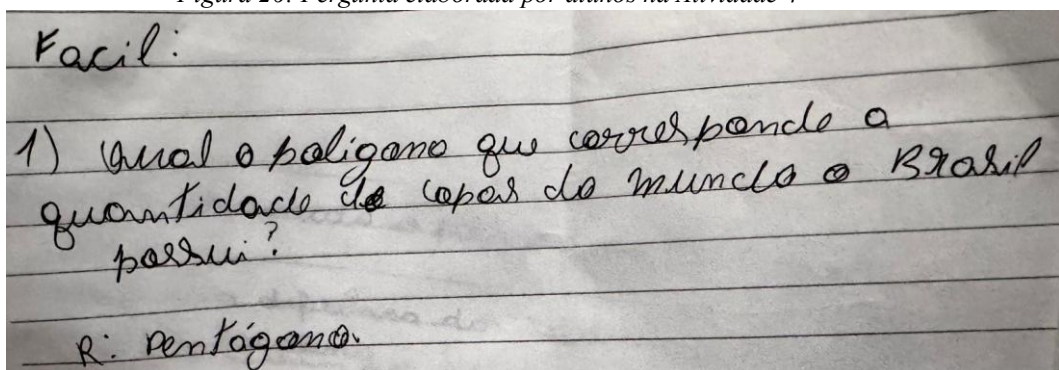 Figura 20: Pergunta elaborada por alunos na Atividade 4
Facil:
1) Qual o poligono que corresponde a
quantidade de copas do mundo o Brasil
possui?
R: Pentágono.